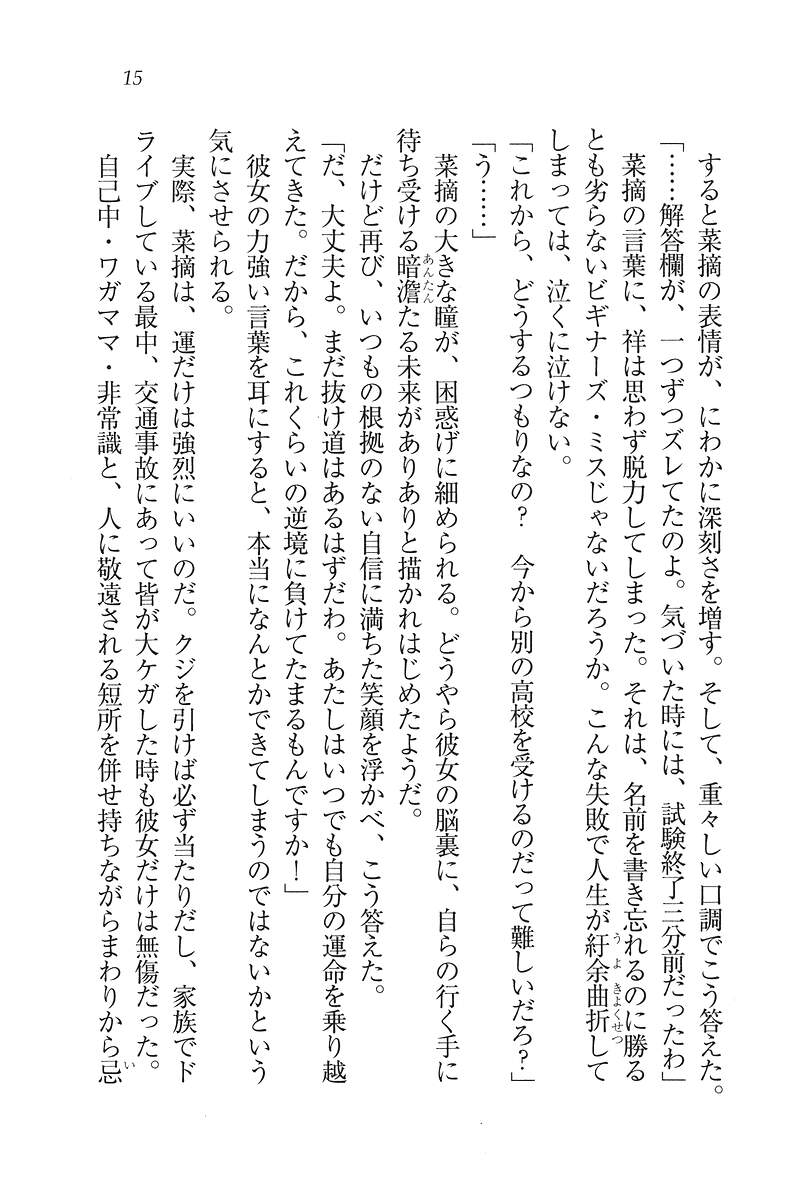 15
すると菜摘の表情が、にわかに深刻さを増す。そして、重々しい口調でこう答えた。
「……解答欄が、一つずつズレてたのよ。気づいた時には、試験終了三分前だったわ」
菜摘の言葉に、祥は思わず脱力してしまった。それは、名前を書き忘れるのに勝る
とも劣らないビギナーズ・ミスじゃないだろうか。こんな失敗で人生が紆余曲折して
しまっては、泣くに泣けない。
「これから、どうするつもりなの？　今から別の高校を受けるのだって難しいだろ？」
「う……」
菜摘の大きな瞳が、困惑げに細められる。どうやら彼女の脳裏に、自らの行く手に
待ち受ける暗澹たる未来がありありと描かれはじめたようだ。
だけど再び、いつもの根拠のない自信に満ちた笑顔を浮かべ、こう答えた。
「だ、大丈夫よ。まだ抜け道はあるはずだわ。あたしはいつでも自分の運命を乗り越
えてきた。だから、これくらいの逆境に負けてたまるもんですか！」
彼女の力強い言葉を耳にすると、本当になんとかできてしまうのではないかという
気にさせられる。
実際、菜摘は、運だけは強烈にいいのだ。クジを引けば必ず当たりだし、家族でド
ライブしている最中、交通事故にあって皆が大ケガした時も彼女だけは無傷だった。
自己中・ワガママ・非常識と、人に敬遠される短所を併せ持ちながらまわりから忌